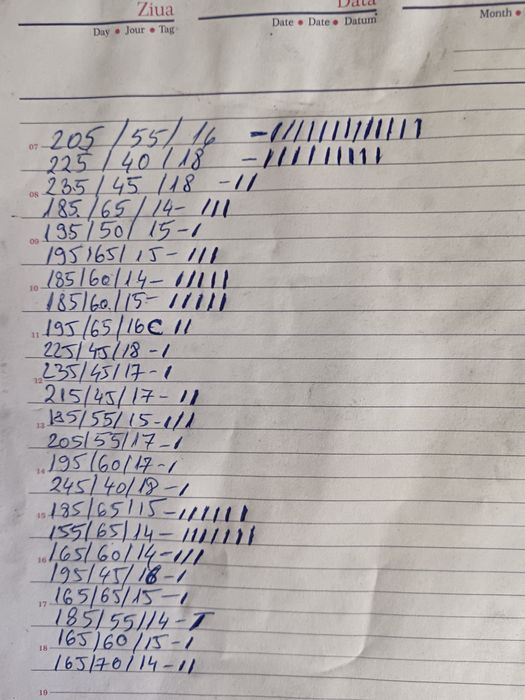 Ziua
Data
Day • Jour • Tag
Date • Date • Datum
Month •
07 205/55/16 -IIIIIIIIIIIII
225/40/18 -IIIIIIIII
08 235/45/18 -II
185/65/14- III
09 195/50/15-I
195/65/15- III
10 185/60/14- IIIII
185/60/15- IIIII
11 195/65/16C II
225/45/18-I
12 235/45/17-I
215/45/17- II
13 185/55/15-III
205/55/17-I
14 195/60/17-I
245/40/18-I
15 185/65/15-IIIIII
155/65/14-IIIIIII
16 165/60/14-III
195/45/16-I
17 165/65/15-I
185/55/14-I
18 165/60/15-I
165/70/14-II
19